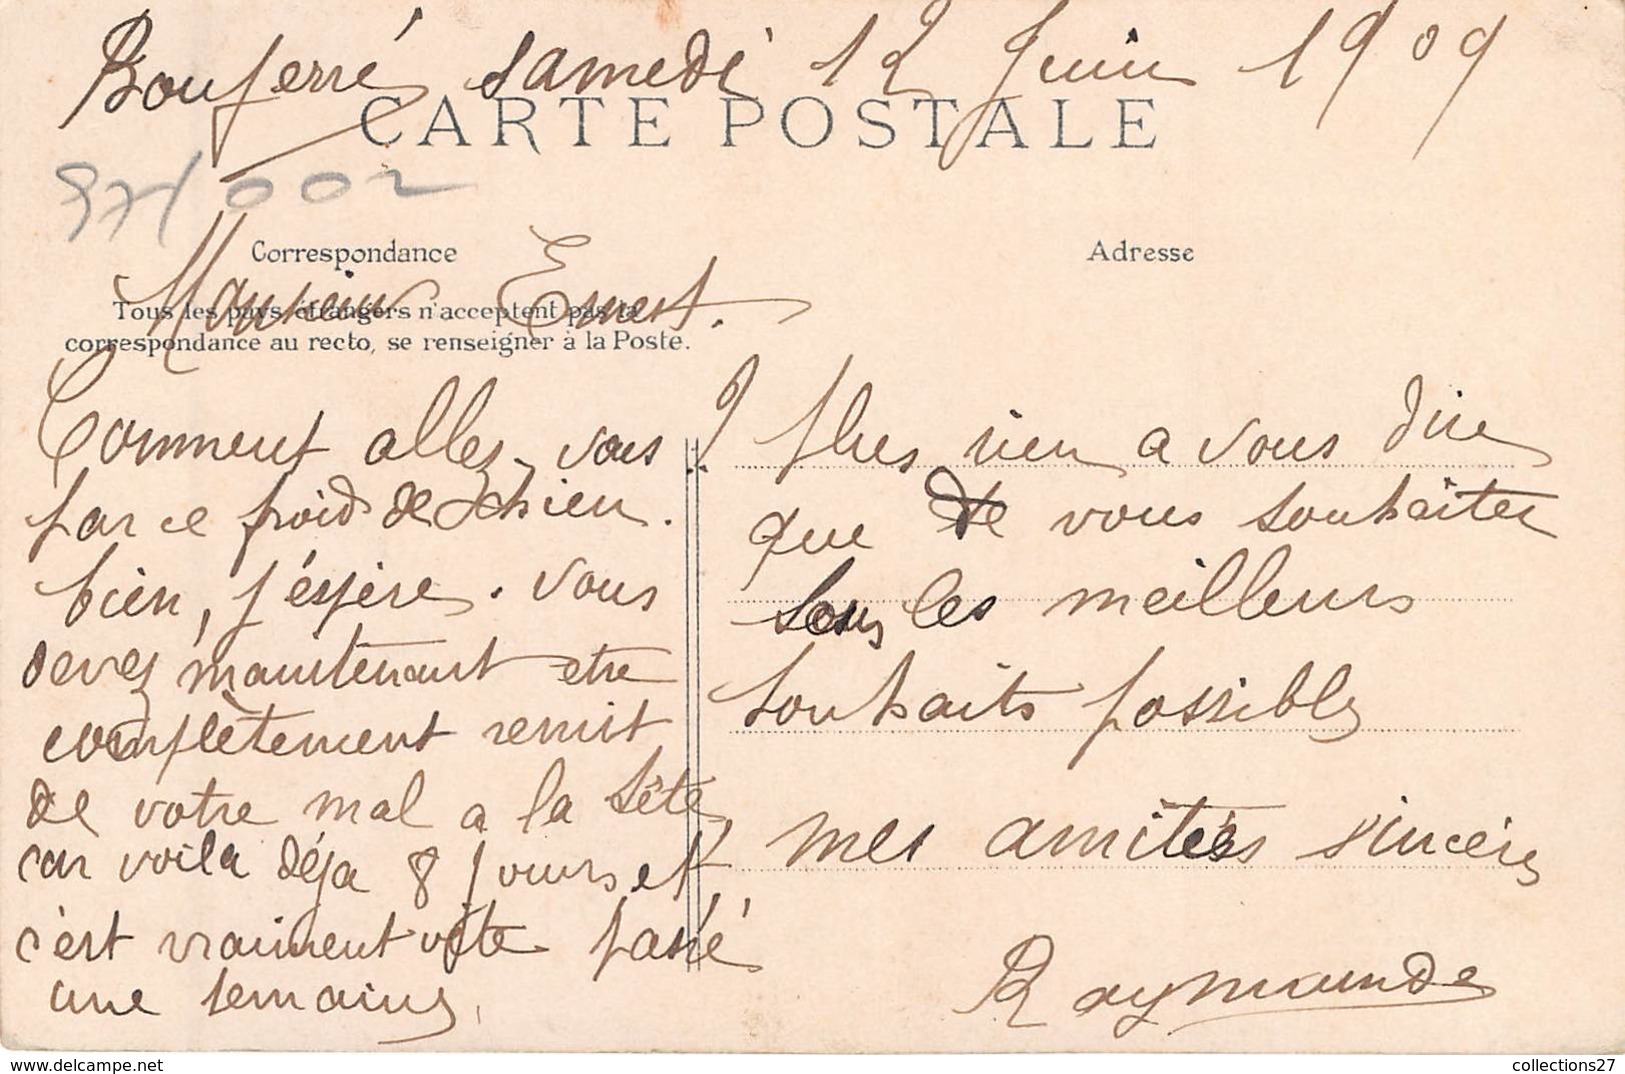 Bouferré samedi 12 Juin 1909
CARTE POSTALE
97/002
Correspondance
Adresse
Monsieur Ernest.
Tous les pays étrangers n'acceptent pas la
correspondance au recto, se renseigner à la Poste.
Comment allez-vous ?
par ce froid de chien.
bien, j'éspère. Vous
devez maintenant etre
complètement remit
de votre mal a la tête
car voila déja 8 jours et
c'est vraiment vite passé
une semaine,
Plus rien a vous dire
que de vous souhaiter
tous les meilleurs
souhaits possibles
mes amitiés sincères
Raymonde
collections27